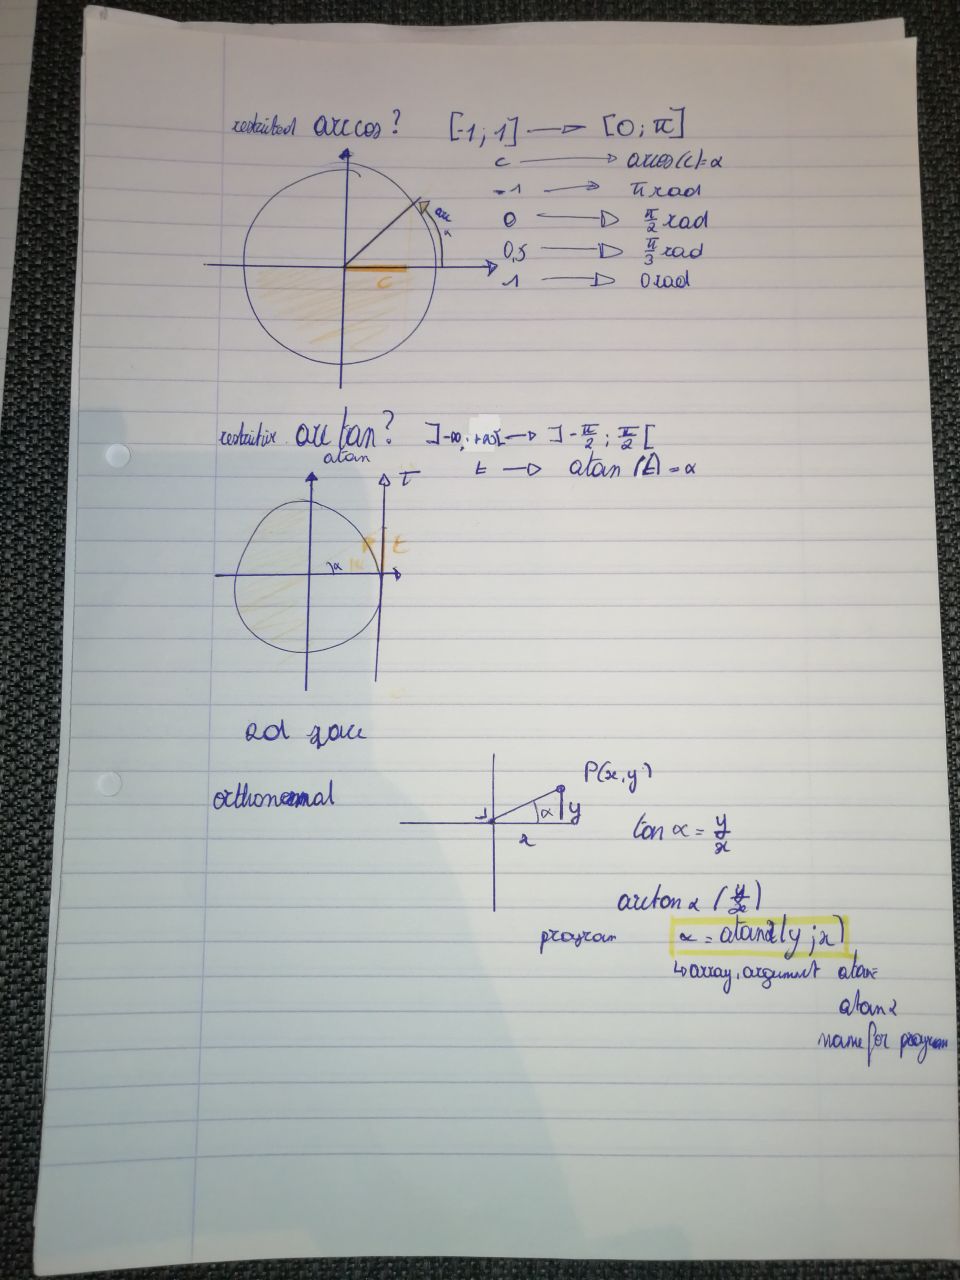 restricted arccos? [-1; 1] → [0; π]
c → arccos(c)=α
-1 → π rad
0 → π/2 rad
0,5 → π/3 rad
1 → 0 rad
arc α
c
arc tan? ]-∞; +∞[ → ]-π/2; π/2[
atan
t → atan(t) = α
T
t
α
2d space
P(x,y)
orthonormal
α y
x
tan α = y/x
arctan α (y/x)
program α = atan2(y;x)
↳ array, argument atan
atan2
name for program